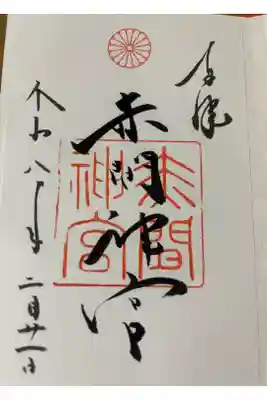 奉拝
赤間神宮
赤間
神宮
令和八年 二月廿一日